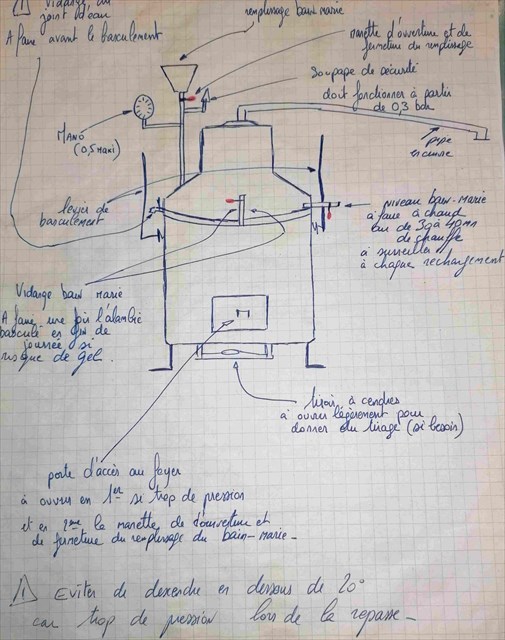 ⚠ Vidange du
joint d'eau
A faire avant le basculement
remplissage bain marie
manette d'ouverture et de
fermeture du remplissage
soupape de sécurité
doit fonctionner à partir
de 0,3 bar
MANO
(0,5 maxi)
pipe
en cuivre
levier de
basculement
niveau bain-marie
à faire à chaud
au de 30 à 40 mn
de chauffe
à surveiller
à chaque rechargement
Vidange bain marie
A faire une fois l'alambic
basculé en fin de
journée si
risque de gel.
tiroir à cendres
à ouvrir légèrement pour
donner du tirage (si besoin)
porte d'accès au foyer
à ouvrir en 1er si trop de pression
et en 2ème la manette de d'ouverture et
de fermeture du remplissage du bain-marie -
⚠ Eviter de descendre en dessous de 20°
car trop de pression lors de la repasse -